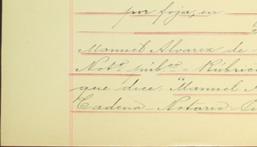 por foja, en
Manuel Alvarez de
Not.º púb.co - Rúbric
que dice: "Manuel
Cadena - Notario - P